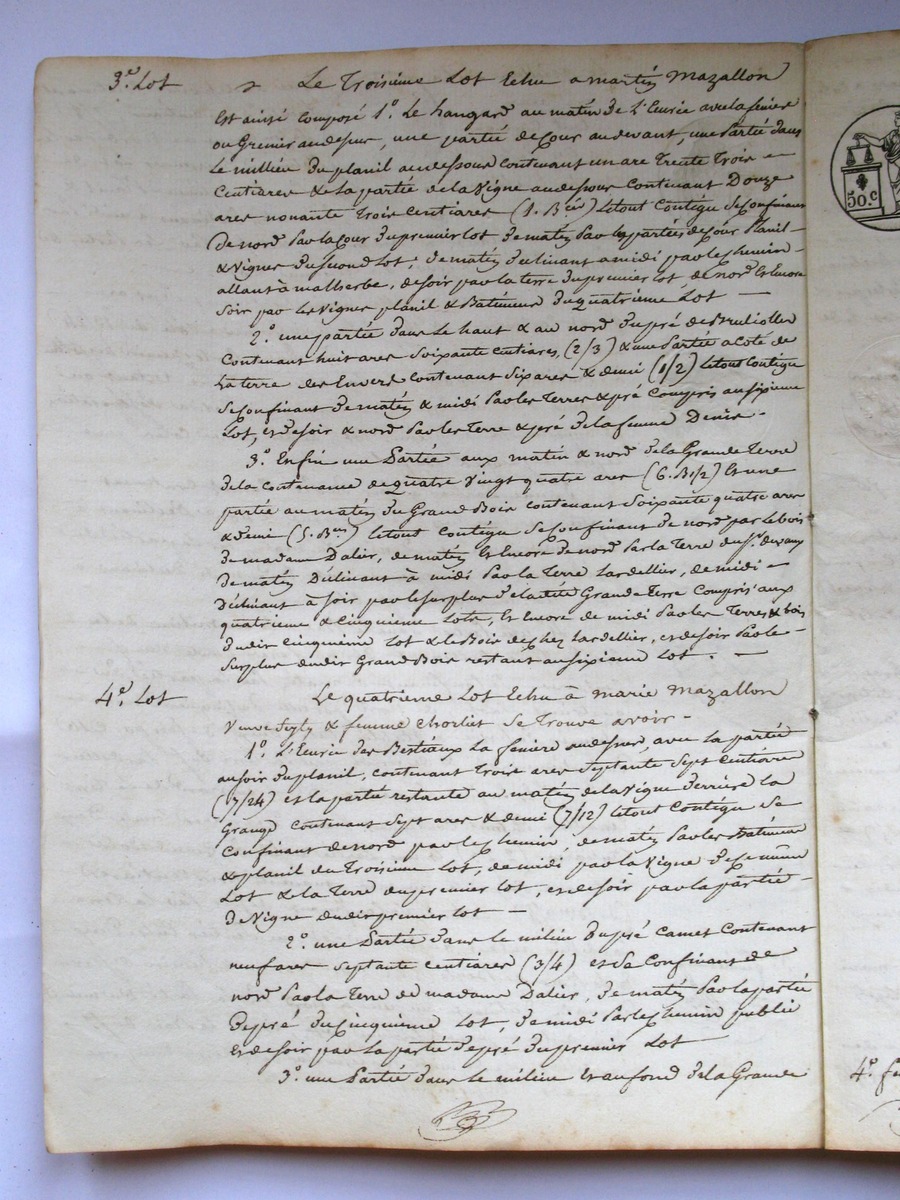 3e. Lot
Le Troisième Lot Echu a martin Mazallon
Est ainsi composé 1o. Le hangard au matin de L'Ecurie avec la fenière
ou Grenier au dessus, une partie de cour au devant, une Partie dans
Le millieu du planil au dessous contenant un are Trente Trois
Centiares & La partie de la Vigne au dessous Contenant Douze
ares nonante Trois Centiares letout Contigu Se Confinant
De nord Par la Cour du premier lot De matin Par les parties de Cour Planil
& Vignes du Second Lot, de matin declinant a midi par le chemin
allant à malherbe, de soir par la terre du premier lot, de nord Et Encore
Soir par les Vignes planil & Batiment du quatrième Lot
2o. une partie dans Le haut & au nord du pré de
Contenant huit ares Soixante Centiares, (2/3) & une Partie a Coté de
La terre des Envers contenant Six ares & demi (1/2) letout Contigu
Se Confinant de matin & midi Par les Terres & pré Compris au Sixieme
Lot, et de soir & nord Par les Terre & pré de la femme Denis.
3o. Enfin une Partie aux matin & nord de la Grande Terre
de la contenance de quatre Vingt quatre ares (6. B. 1/2) Et une
partie au matin du Grand Bois contenant Soixante quatre ares
& demi letout Contigu Se Confinant de nord par Le bois
de madame Dalier, de matin Et Encore de nord Par la Terre du Sr.
De matin Déclinant à midi Par la Terre Lardellier, de midi
Déclinant à Soir par le Surplus de la dite Grande Terre Compris aux
quatrieme & Cinquieme Lots, Et Encore de midi Par les Terres & bois
dudit Cinquième Lot & le Bois de chez Lardellier, et de soir Par le
Surplus dudit Grand Bois restant au Sixieme Lot.
4e. Lot
Le quatrieme Lot Echu à marie Mazallon
Veuve & femme Chorliet Se Trouve avoir
1o. L'Ecurie des Bestiaux La fenière au dessus, avec La partie
au soir du planil, contenant Trois ares Septante Sept Centiares
(7/24) et la partie restante au matin de la Vigne derrière la
Grange Contenant Sept ares & demi (7/12) letout Contigu Se
Confinant de nord par le chemin, de matin Par les Batiment
& planil du Troisième Lot, de midi par la Vigne
Lot & la Terre du premier Lot, et de soir par la partie
De Vigne dudit premier Lot
2o. une Partie dans le milieu du pré Camet Contenant
neuf ares Septante Centiares (3/4) et Se Confinant de
nord Par la Terre de madame Dalier, de matin Par la partie
de pré du Cinquième Lot, de midi Par le chemin public
et de soir par La partie de pré du premier Lot
3o. une Partie dans Le milieu Et au fond de la Grande
50. c
4e. f